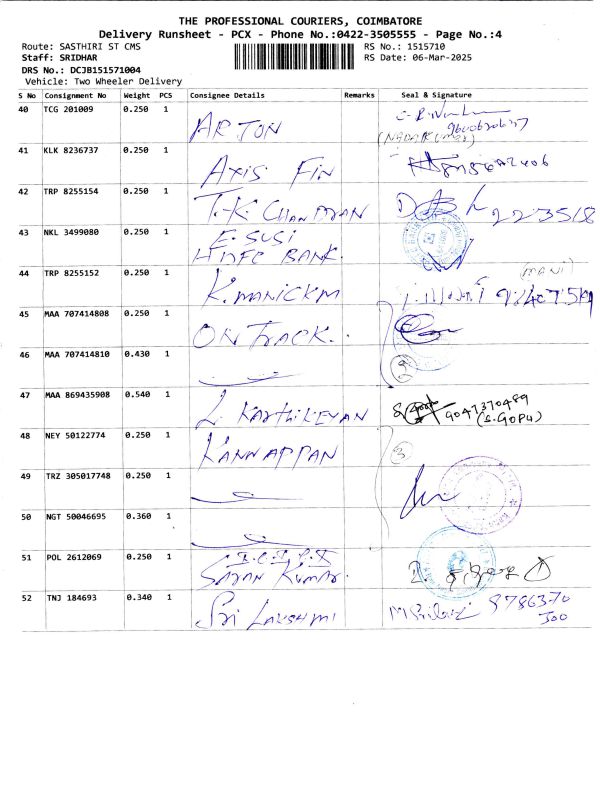 THE PROFESSIONAL COURIERS, COIMBATORE
Delivery Runsheet - PCX - Phone No.:0422-3505555 - Page No.:4
Route: SASTHIRI ST CMS
RS No.: 1515710
Staff: SRIDHAR
RS Date: 06-Mar-2025
DRS No.: DCJB151571004
Vehicle: Two Wheeler Delivery
S No Consignment No Weight PCS Consignee Details Remarks Seal & Signature
40 TCG 201009 0.250 1 ARJON
41 KLK 8236737 0.250 1 AXIS FIN
42 TRP 8255154 0.250 1 T.K. CHANDRAN 223518
43 NKL 3499080 0.250 1 E. SUSI
HDFC BANK.
44 TRP 8255152 0.250 1 K. MANICKM (MANI)
45 MAA 707414808 0.250 1 ONTRACK.
46 MAA 707414810 0.430 1 2
47 MAA 869435908 0.540 1 L. KARTHIKEYAN 9047370489
(S.GOPU)
48 NEY 50122774 0.250 1 KANNAPPAN 3
49 TRZ 305017748 0.250 1
50 NGT 50046695 0.360 1
51 POL 2612069 0.250 1
SAJAN KUMAR.
52 TNJ 184693 0.340 1 SRI LAKSHMI 9786370